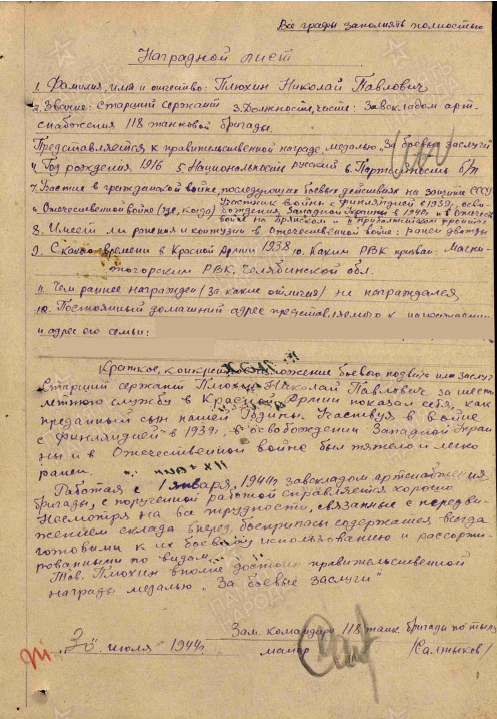 Все графы заполнять полностью
Наградной лист
1. Фамилия, имя и отчество: Плюхин Николай Павлович
2. Звание: старший сержант 3. Должность, часть: Завскладом арт-
снабжения 118 танковой бригады.
Представляется к правительственной награде медалью "За боевые заслуги"
4. Год рождения 1916 5. Национальность русский 6. Партийность б/п
7. Участие в гражданской войне, последующих боевых действиях на защите СССР
и Отечественной войне (где, когда) Участник войны с Финляндией в 1939г, осво-
бождения Западной Украины в 1940г. и в Отечест.
войне на Брянском и Прибалтийском
8. Имеет ли ранения и контузии в Отечественной войне: ранен дважды
9. С какого времени в Красной Армии 1938 10. Каким РВК призван: Магни-
тогорским РВК, Челябинской обл.
11. Чем раннее награжден (за какие отличия) не награждался
12. Постоянный домашний адрес представляемого к
и адрес его семьи:
Краткое, конкретное изложение боевого подвига или заслуг
Старший сержант Плюхин Николай Павлович, за шести
летнюю службу в Красной Армии показал себя, как
преданный сын нашей Родины. Участвуя в войне
с Финляндией в 1939г, в освобождении Западной Украи
ны и в Отечественной войне был тяжело и легко
ранен.
Работая с 1 января, 1944г завскладом артснабжения
бригады, с порученной работой справляется хорошо
Несмотря на все трудности, связанные с передви-
жением склада вперед, боеприпасы содержатся всегда
готовыми к их боевому использованию и рассорти-
рованными по видам.
Тов. Плюхин вполне достоин правительственной
награды медалью "За боевые заслуги"
Зам. командира 118 танк. бригады по тылу
"30" июля 1944г. майор /Салтыков/